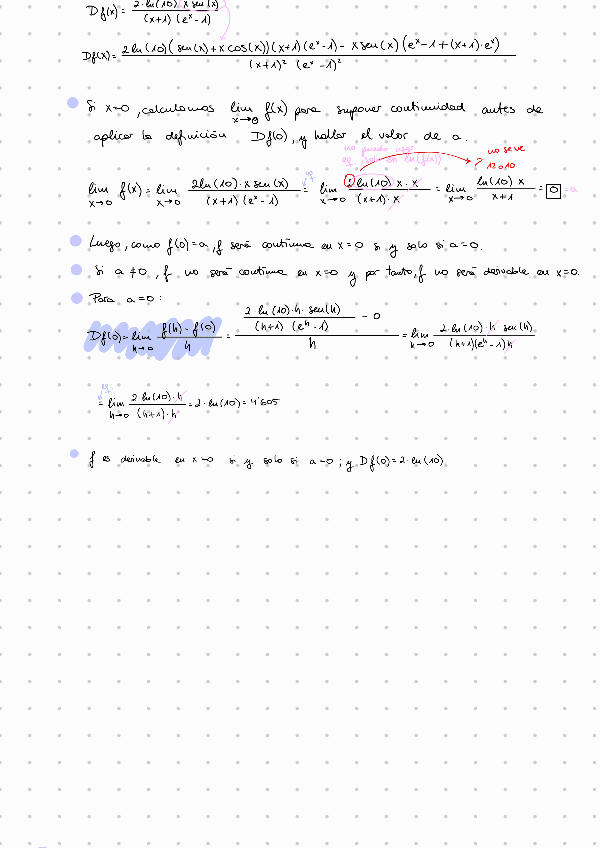 Df(x)= 2·ln(10)·x sen(x) / (x+1)(eˣ-1)
Df(x)= 2 ln(10)(sen(x)+x cos(x))(x+1)(eˣ-1) - x sen(x)(eˣ-1+(x+1)·eˣ) / (x+1)² (eˣ-1)²
Si x=0, calculamos lim x→0 f(x) para suponer continuidad antes de
aplicar la definición Df(0), y hallar el valor de a.
no puedo usar no se ve
eq, solo en ln(f(x)) 12 o 10
lim x→0 f(x) = lim x→0 2ln(10)·x sen(x) / (x+1)(eˣ-1) = lim x→0 2ln(10) x·x / (x+1)·x = lim x→0 ln(10) x / x+1 = 0 =a
Luego, como f(0)=a, f será continua en x=0 si y solo si a=0.
Si a≠0, f no será continua en x=0 y por tanto, f no será derivable en x=0.
Para a=0:
Df(0)= lim h→0 f(h)-f(0) / h = 2·ln(10)·h·sen(h) / (h+1)(eʰ-1) - 0 / h = lim h→0 2·ln(10)·h·sen(h) / (h+1)(eʰ-1)h
= lim h→0 2 ln(10)·h / (h+1)·h = 2·ln(10)=4'605
f es derivable en x=0 si y solo si a=0; y Df(0)=2·ln(10)